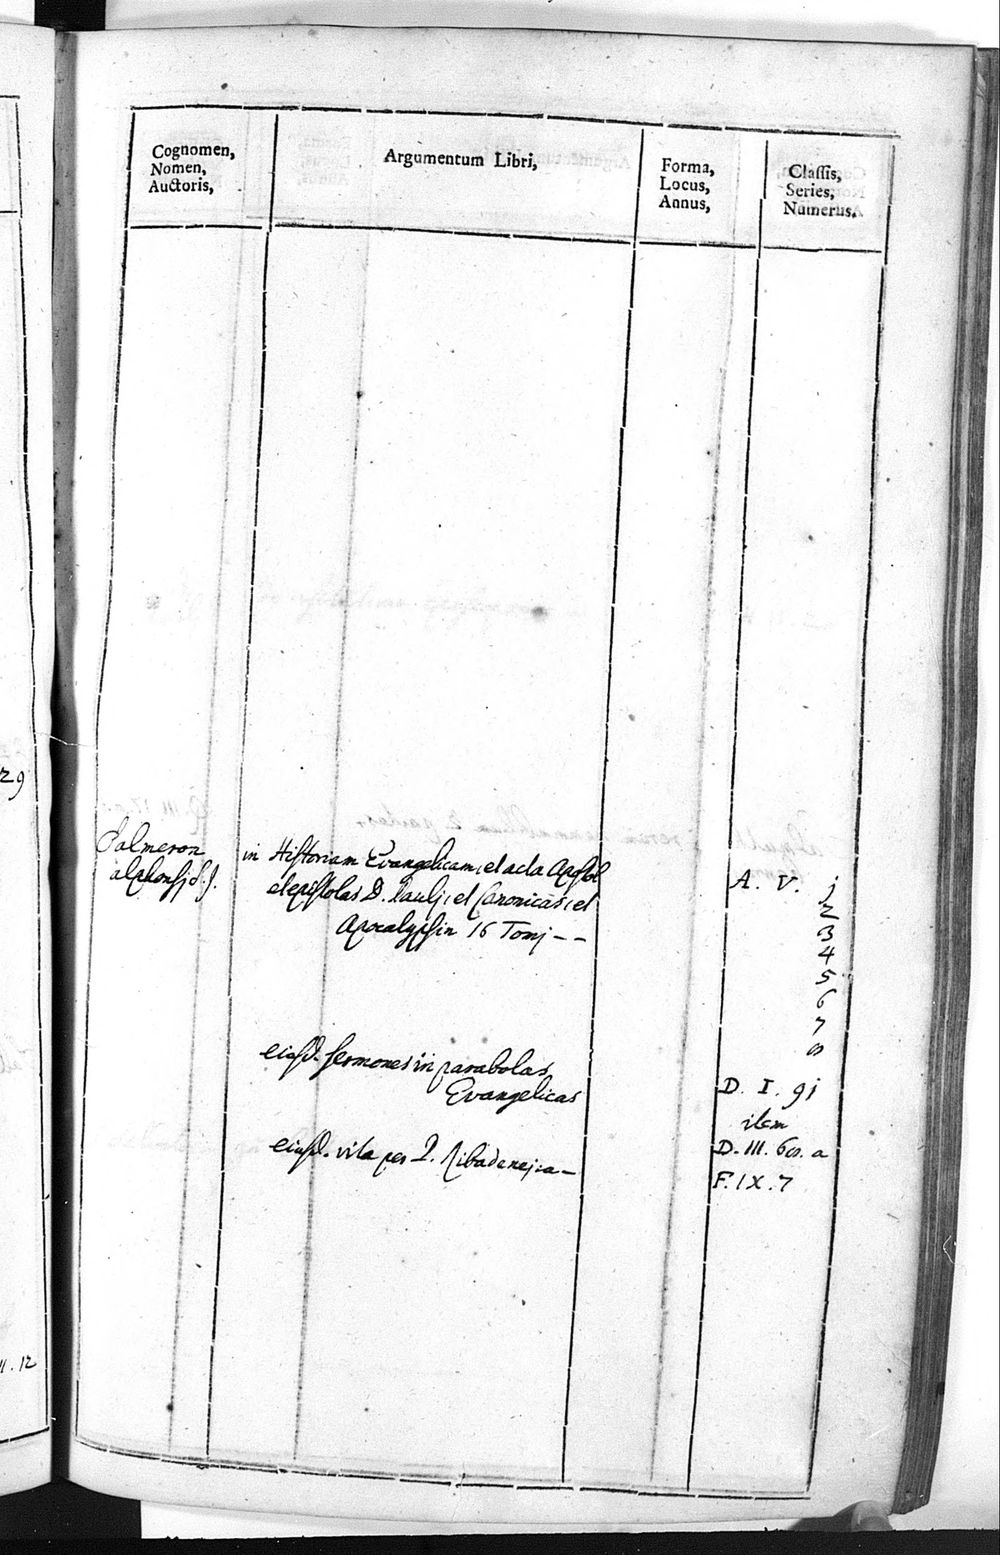 Cognomen,
Nomen,
Auctoris,
Argumentum Libri,
Forma,
Locus,
Annus,
Classis,
Series,
Numerus,
29
Salmeron
alphonsj S.J.
in Historiam Evangelicam, et acta Apostol
et epistolas D. Paulj, et Canonicas, et
Apocalypsin 16 Tomj - -
A. V. j
2
3
4
5
6
7
8
eiusd. sermones in parabolas
Evangelicas
D. I. 91
item
D. III. 60. a
eiusd. vita per P. Ribadenejra -
F. IX. 7
11. 12